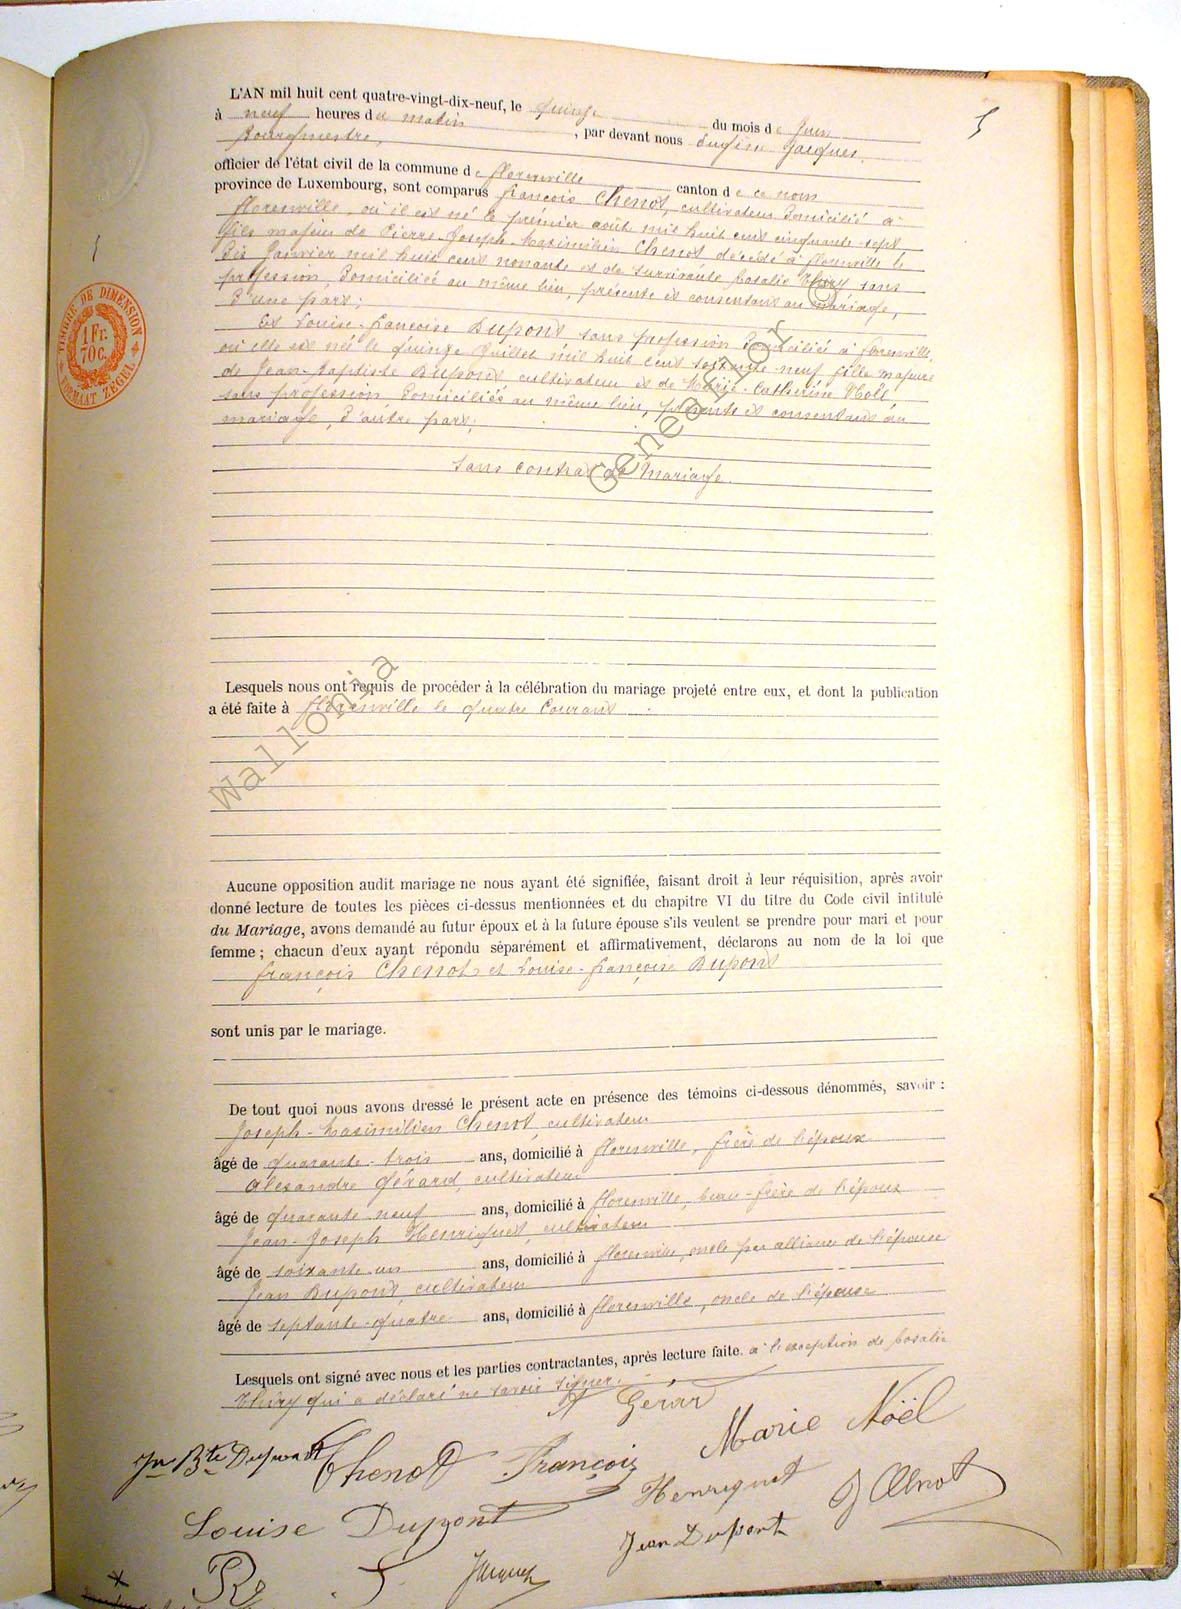 5
L'AN mil huit cent quatre-vingt-dix-neuf, le quinze du mois de Juin
à neuf heures du matin, par devant nous Eugène Jacques,
Bourgmestre,
officier de l'état civil de la commune de Florenville canton de ce nom
province de Luxembourg, sont comparus François Chenot, cultivateur domicilié à
Florenville, où il est né le premier août mil huit cent cinquante-sept
fils majeur de Pierre-Joseph-Maximilien Chenot décédé à Florenville le
dix Janvier mil huit cent nonante et de survivante Rosalie Thiry sans
profession, domiciliée au même lieu, présente et consentant au mariage,
d'une part;
Et Louise-Françoise Dupont sans profession domiciliée à Florenville,
où elle est née le quinze Juillet mil huit cent soixante-neuf fille majeure
de Jean-Baptiste Dupont cultivateur et de Marie-Catherine Noël
sans profession domiciliés au même lieu, présents et consentant au
mariage, d'autre part;
Sans contrat de Mariage.
TIMBRE DE DIMENSION
1 Fr.
70 c.
FORMAAT ZEGEL
Lesquels nous ont requis de procéder à la célébration du mariage projeté entre eux, et dont la publication
a été faite à Florenville le quatre Courant
Aucune opposition audit mariage ne nous ayant été signifiée, faisant droit à leur réquisition, après avoir
donné lecture de toutes les pièces ci-dessus mentionnées et du chapitre VI du titre du Code civil intitulé
du Mariage, avons demandé au futur époux et à la future épouse s'ils veulent se prendre pour mari et pour
femme ; chacun d'eux ayant répondu séparément et affirmativement, déclarons au nom de la loi que
François Chenot et Louise-Françoise Dupont
sont unis par le mariage.
De tout quoi nous avons dressé le présent acte en présence des témoins ci-dessous dénommés, savoir :
Joseph-Maximilien Chenot, cultivateur
âgé de quarante-trois ans, domicilié à Florenville, frère de l'époux
Alexandre Gérard, cultivateur
âgé de quarante neuf ans, domicilié à Florenville, beau-frère de l'époux
Jean-Joseph Henriquet, cultivateur
âgé de soixante un ans, domicilié à Florenville, oncle par alliance de l'épouse
Jean Dupont, cultivateur
âgé de septante-quatre ans, domicilié à Florenville, oncle de l'épouse
Lesquels ont signé avec nous et les parties contractantes, après lecture faite. à l'exception de Rosalie
Thiry qui a déclaré ne savoir signer.
A Gérard
Marie Noël
Jn Bte Dupont Chenot François
Henriquet J Chenot
Louise Dupont
Jean Dupont
Jacques
Wallonia Genealor ©